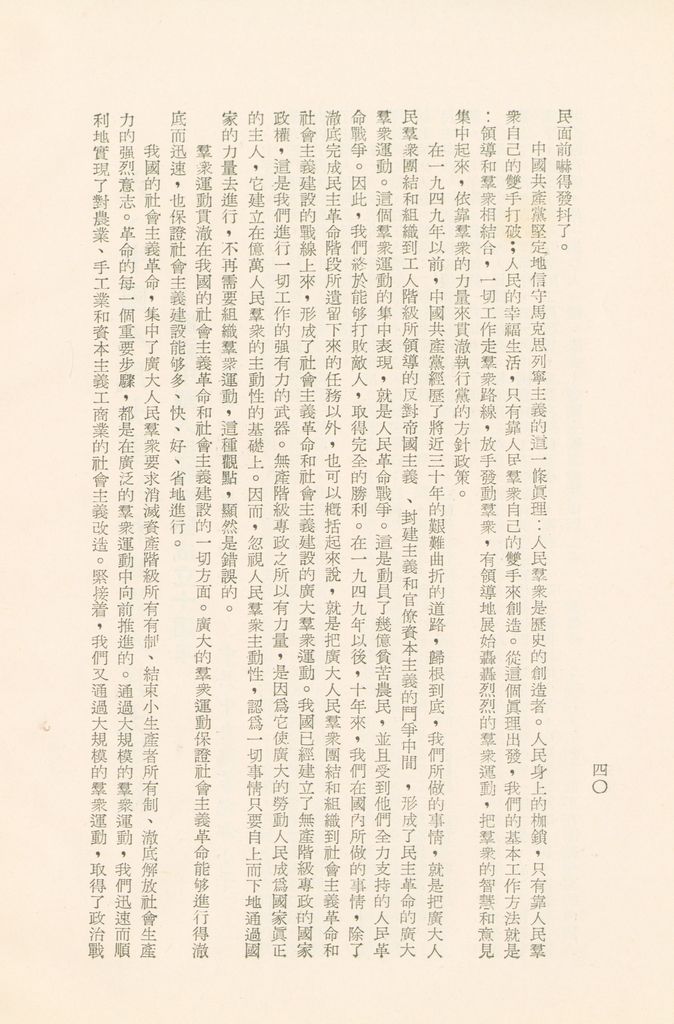 民面前嚇得發抖了。
中國共產黨堅定地信守馬克思列寧主義的這一條眞理：人民羣衆是歷史的創造者。人民身上的枷鎖，只有靠人民羣
衆自己的雙手打破；人民的幸福生活，只有靠人民羣衆自己的雙手來創造。從這個眞理出發，我們的基本工作方法就是
：領導和羣衆相結合，一切工作走羣衆路線，放手發動羣衆，有領導地展始轟轟烈烈的羣衆運動，把羣衆的智慧和意見
集中起來，依靠羣衆的力量來貫澈執行黨的方針政策。
在一九四九年以前，中國共產黨經歷了將近三十年的艱難曲折的道路，歸根到底，我們所做的事情，就是把廣大人
民羣衆團結和組織到工人階級所領導的反對帝國主義、封建主義和官僚資本主義的鬥爭中間，形成了民主革命的廣大
羣衆運動。這個羣衆運動的集中表現，就是人民革命戰爭。這是動員了幾億貧苦農民，並且受到他們全力支持的人民革
命戰爭。因此，我們終於能够打敗敵人，取得完全的勝利。在一九四九年以後，十年來，我們在國內所做的事情，除了
澈底完成民主革命階段所遺留下來的任務以外，也可以概括起來說，就是把廣大人民羣衆團結和組織到社會主義革命和
社會主義建設的戰線上來，形成了社會主義革命和社會主義建設的廣大羣衆運動。我國已經建立了無產階級專政的國家
政權，這是我們進行一切工作的强有力的武器。無產階級專政之所以有力量，是因爲它使廣大的勞動人民成爲國家眞正
的主人，它建立在億萬人民羣衆的主動性的基礎上。因而，忽視人民羣衆主動性，認爲一切事情只要自上而下地通過國
家的力量去進行，不再需要組織羣衆運動，這種觀點，顯然是錯誤的。
羣衆運動貫澈在我國的社會主義革命和社會主義建設的一切方面。廣大的羣衆運動保證社會主義革命能够進行得澈
底而迅速，也保證社會主義建設能够多、快、好、省地進行。
我國的社會主義革命，集中了廣大人民羣衆要求消滅資產階級所有制、結束小生產者所有制、澈底解放社會生產
力的强烈意志。革命的每一個重要步驟，都是在廣泛的羣衆運動中向前推進的。通過大規模的羣衆運動，我們迅速而順
利地實現了對農業、手工業和資本主義工商業的社會主義改造。緊接着，我們又通過大規模的羣衆運動，取得了政治戰
四〇